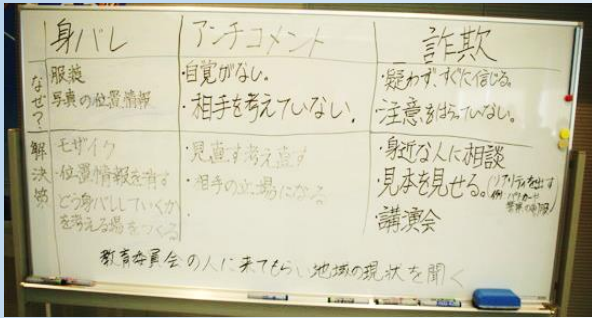 身バレ
アンチコメント
詐欺
なぜ?
服装
写真の位置情報
・自覚がない。
・相手を考えていない。
・疑わず、すぐに信じる。
・注意をはらっていない。
解決策
モザイク
・位置情報を消す
どう身バレしていくか
を考える場をつくる
・見直す考え直す
・相手の立場になる
・身近な人に相談
・見本を見せる。
リアリティを出す
・講演会
教育委員会の人に来てもらい地域の現状を聞く